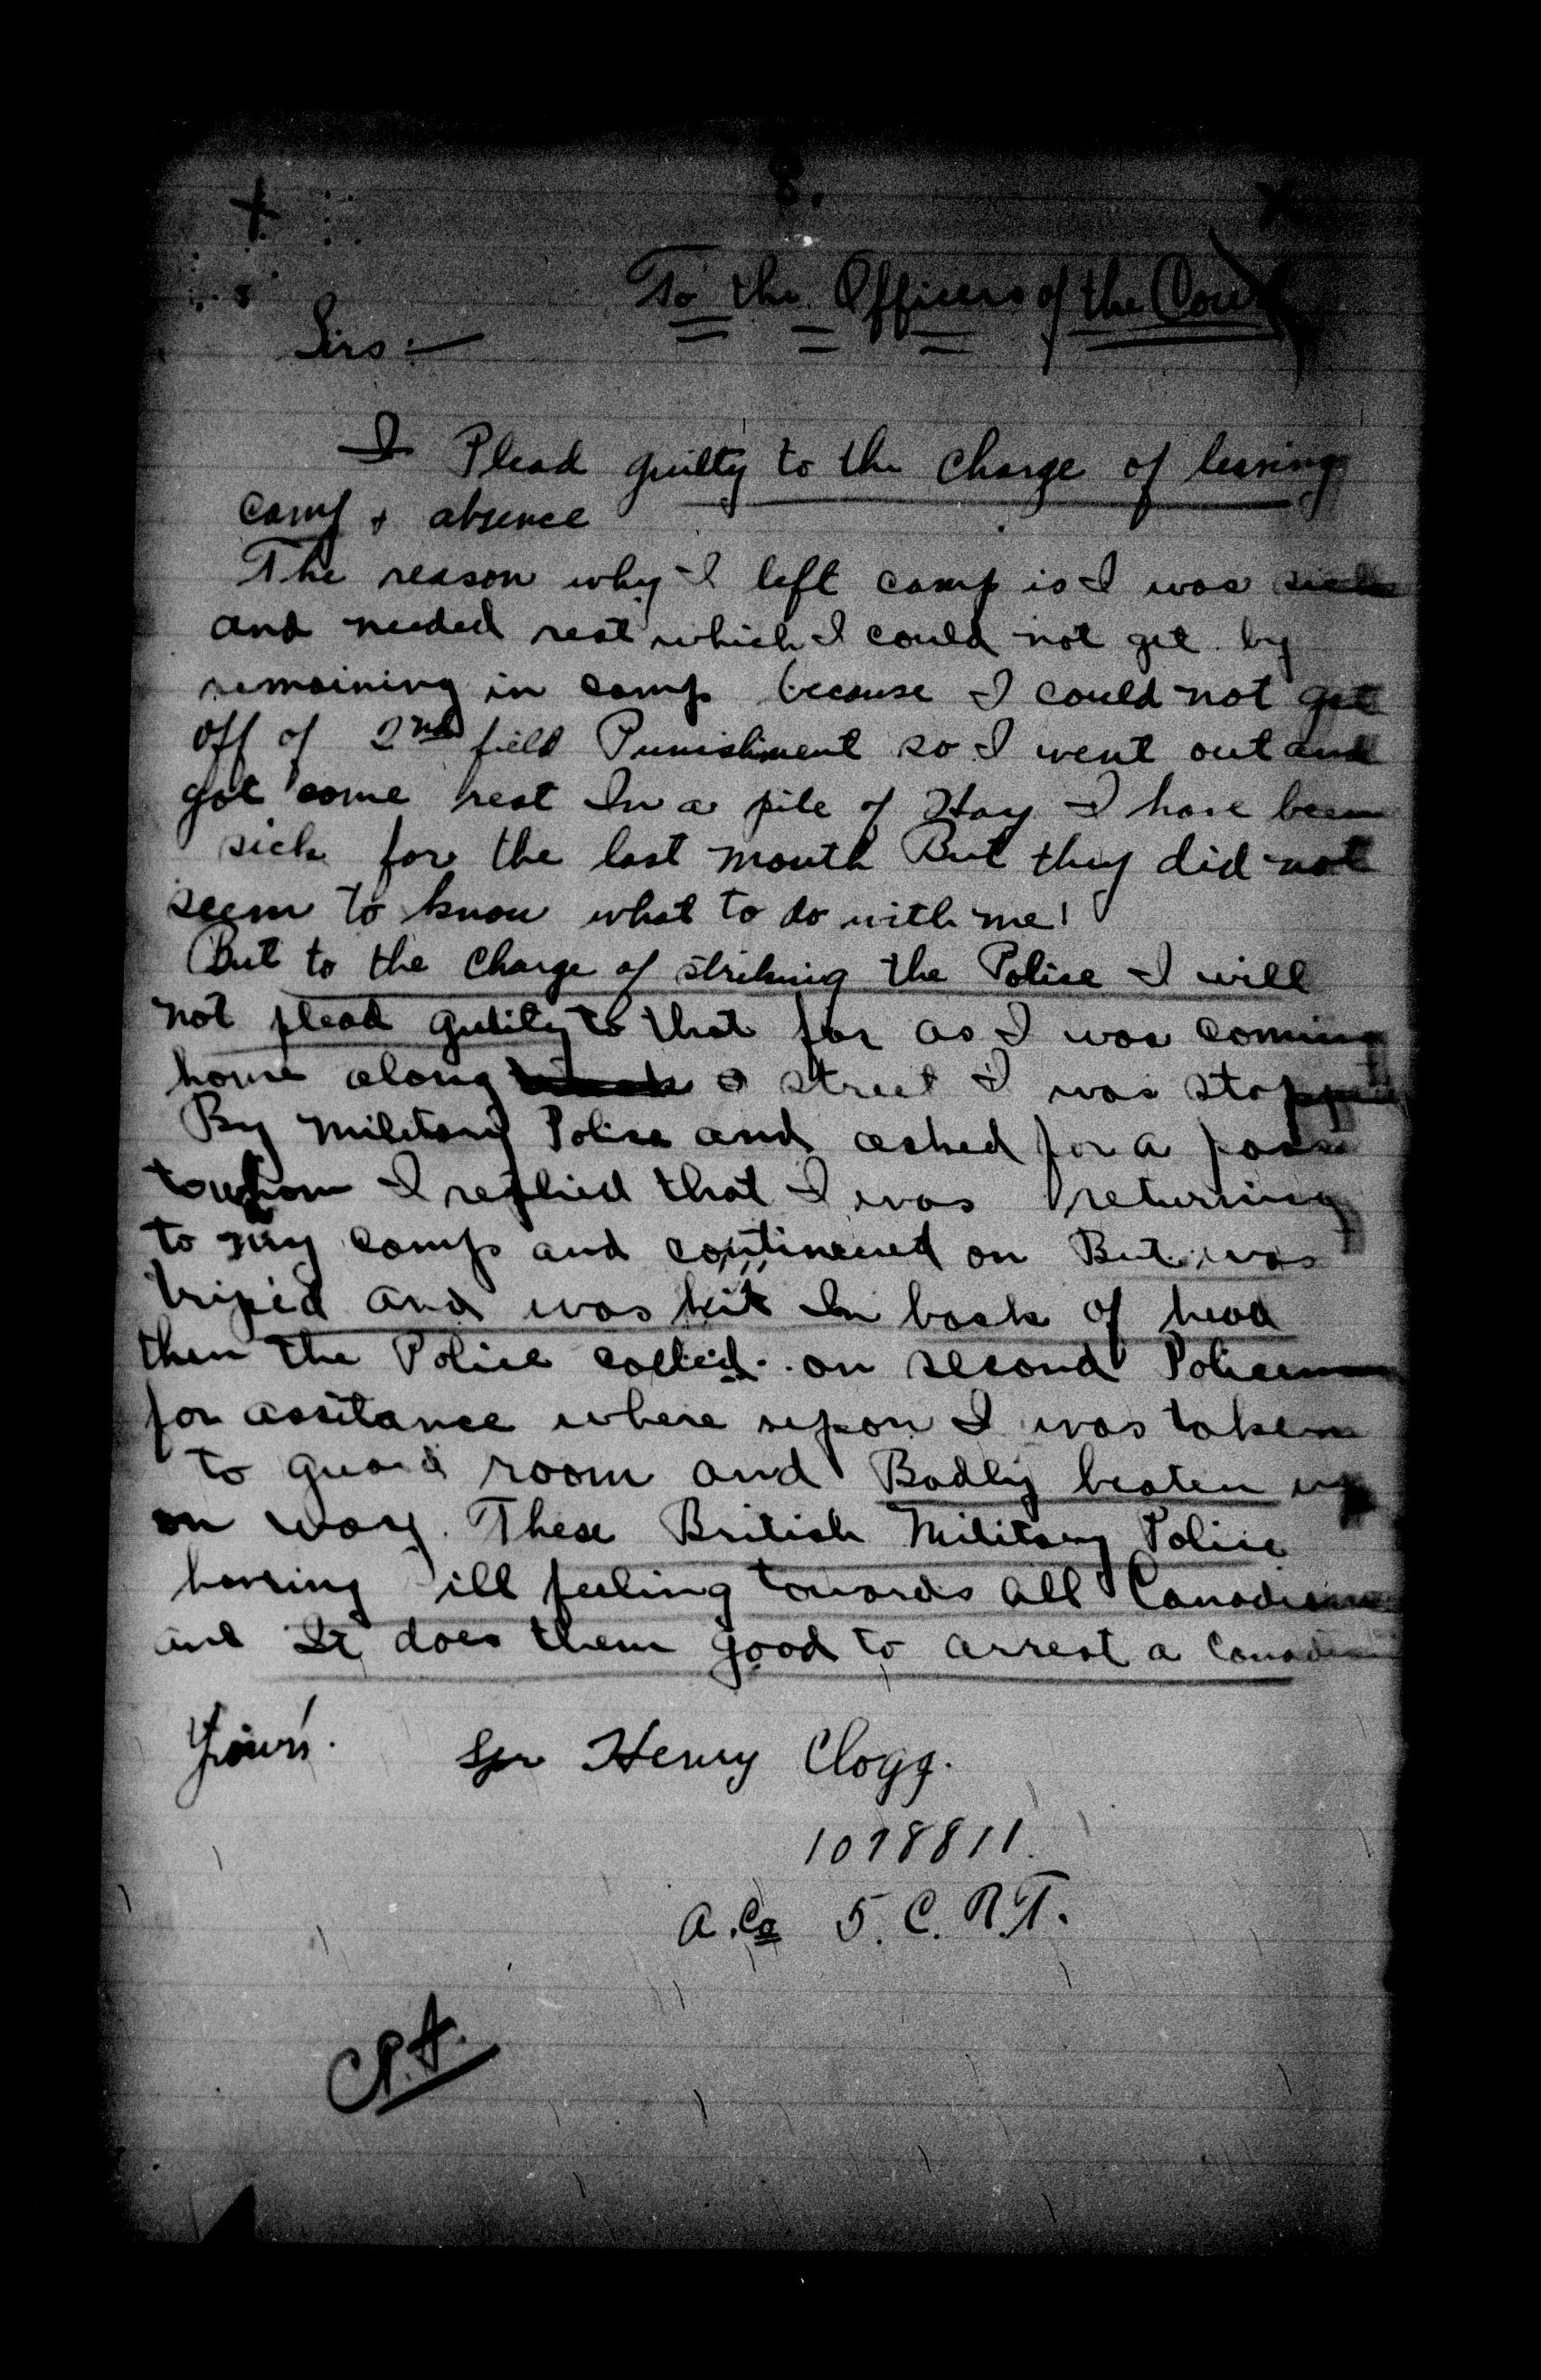 8.
To the Officers of the Court
Sirs:—
I Plead guilty to the charge of leaving
camp + absence
The reason why I left camp is I was sick
and needed rest which I could not get by
remaining in camp because I could not get
off of 2nd field Punishment so I went out and
got some rest In a pile of Hay I have been
sick for the last month But they did not
seem to know what to do with me!
But to the charge of striking the Police I will
not plead guility to that for as I was coming
home along a street I was stopped
By Military Police and asked for a pass
to whom I replied that I was returning
to my camp and continued on But was
triped and was hit In back of head
then the Police called on second Policeman
for assitance where upon I was taken
to guard room and Badly beaten up
on way. These British Military Police
having ill feeling towards all Canadians
and It does them good to arrest a Canadian
Yours. Spr Henry Clogg.
1078811.
A. Co 5. C. R. T.